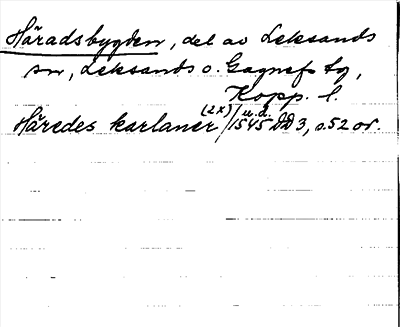 Häradsbygden, del av Leksands
sn, Leksands o. Gagnefs tg,
Kopp. l.
Häredes karlaner (2x) / u.d. 1545 DD 3, s. 52 or.